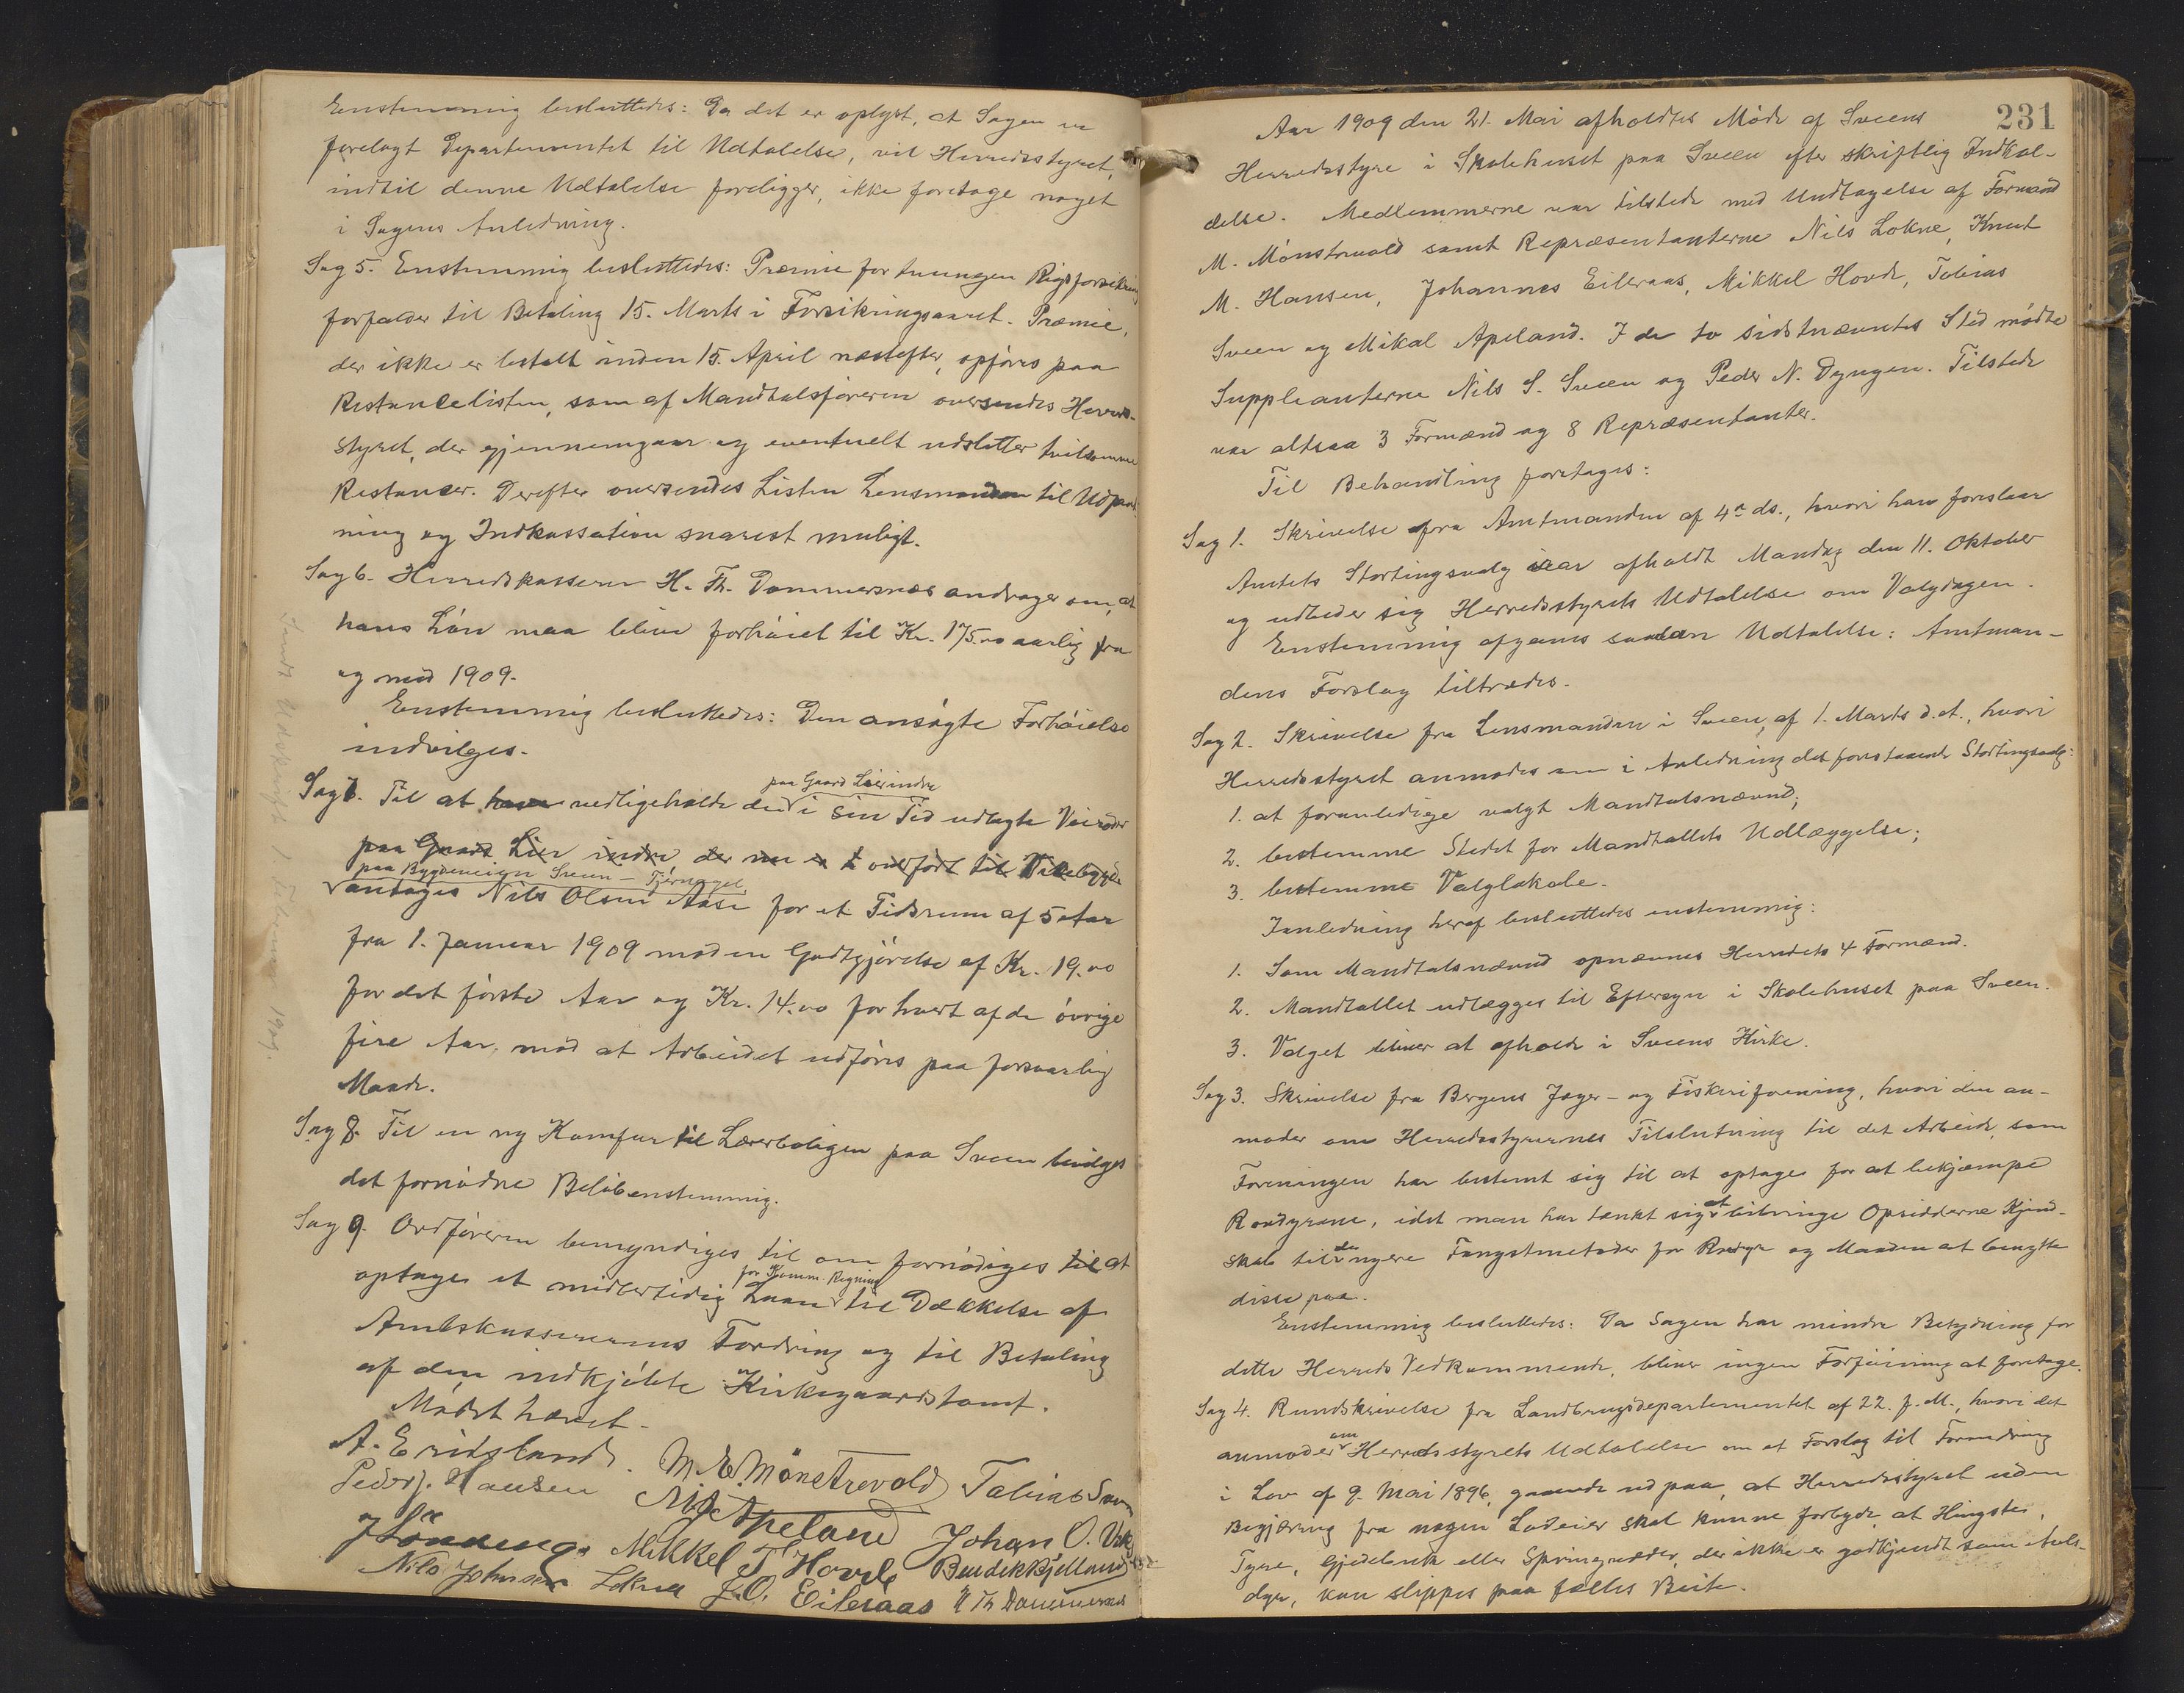 Enstemmig besluttedes: Da det er oplyst, at Sagen er
forelagt Departementet til Udtalelse, vil Herredsstyret,
indtil denne Udtalelse foreligger, ikke foretage noget
i Sagens Anledning.
Sag 5. Enstemmig besluttedes: Præmie for tvungen
forfalder til Betaling 15. Marts i Forsikringsaaret. Præmie,
der ikke er betalt inden 15. April næstefter, opføres paa
Restancelisten, som af Mandtalsføreren oversendes Herreds-
styret, der gjennemgaar og eventuelt udsletter tvilsomme
Restancer. Derefter oversendes Listen Lensmanden til Udpant
ning og Indkassation snarest muligt.
Sag 6. Herredskasserer H. Th. Dommersnes andrager om, at
hans Løn maa blive forhøiet til Kr. 175.00 aarlig fra
og med 1909.
Enstemmig besluttedes: Den ansøgte Forhøielse
indvilges.
paa Gaard Lier indre
Sag 7. Til at vedligeholde den i sin Tid udlagte Veiroder
paa Gaard Lier indre der nu er overført til
paa Bygdeveien Sveen – Tjernagel
antages Nils Olsen Aase for et Tidsrum af 5 Aar
fra 1. Januar 1909 mod en Godtgjørelse af Kr. 19.00
for det første Aar og Kr. 14.00 for hvert af de øvrige
fire Aar, mod at Arbeidet udføres paa forsvarlig
Maade.
Sag 8. Til en ny Komfur til Lærerboligen paa Sveen bevilges
det fornødne Beløb enstemmig.
Sag 9. Ordføreren bemyndiges til om fornødiges til at
for Komm. Regning
optage et midlertidig Laan til Dækkelse af
Amtskassererens Fordring og til Betaling
af den indkjøbte Kirkegaardstomt.
Mødet hævet.
A. Eridsland. M. E. Mönstrevold Tobias Sveen
Peder J. Hansen M. Apeland
Mikkel T. Hovde Johan O. Vik
Nils Johnsen Lokna J. O. Eileraas Bendik Bjelland H Th Dommersnes
Sendt Udskrift 1 1909.
231
Aar 1909 den 21. Mai afholdtes Møde af Sveens
Herredsstyre i Skolehuset paa Sveen efter skriftlig Indkal-
delse. Medlemmerne var tilstede med Undtagelse af Formand
M. Mønstrevold samt Repræsentanterne Nils Lokne, Knut
M. Hansen, Johannes Eileraas, Mikkel Hovde, Tobias
Sveen og Mikal Apeland. I de to sidstnævntes Sted mødte
Suppleanterne Nils S. Sveen og Peder N. Dyngen. Tilstede
var altsaa 3 Formænd og 8 Repræsentanter.
Til Behandling foretages:
Sag 1. Skrivelse fra Amtmanden af 4de ds., hvori han foreslaar
Amtets Stortingsvalg iaar afholdt Mandag den 11. Oktober
og udbeder sig Herredsstyrets Udtalelse om Valgdagen.
Enstemmig afgaves saadan Udtalelse: Amtman-
dens Forslag tiltrædes.
Sag 2. Skrivelse fra Lensmanden i Sveen, af 1. Marts d. A., hvori
Herredsstyret anmodes om i Anledning det forestaaende Stortingsvalg:
1. at foranledige valgt Mandtalsnævnd;
2. bestemme Stedet for Mandtallets Udlæggelse;
3. bestemme Valglokale.
I anledning heraf besluttedes enstemmig:
1. Som Mandtalsnævnd opnævnes Herredets 4 Formænd.
2. Mandtallet udlægges til Eftersyn i Skolehuset paa Sveen.
3. Valget bliver at afholde i Sveens Kirke.
Sag 3. Skrivelse fra Bergens Jæger- og Fiskeriforening, hvori den an-
moder om Herredsstyrernes Tilslutning til det Arbeide, som
Foreningen har bestemt sig til at optage for at bekjæmpe
Rovdyrene, idet man har tænkt sig at bibringe Opsidderne Kjend-
skab til de nyere Fangstmetoder for Rovdyr og Maaden at benytte
disse paa.
Enstemmig besluttedes: Da Sagen har mindre Betydning for
dette Herreds Vedkommende, bliver ingen Forføining at foretage.
Sag 4. Rundskrivelse fra Landbrugsdepartementet af 22. f. M., hvori det
anmoder om Herredsstyrets Udtalelse om et Forslag til Forandring
i Lov af 9. Mai 1896, gaaende ud paa, at Herredsstyret uden
Begjæring fra nogen Lodeier skal kunne forbyde at Hingster,
Tyre, Gjedebuk eller Springvæder, der ikke er godkjendt som Avls-
dyr, kan slippes paa fælles Beite.